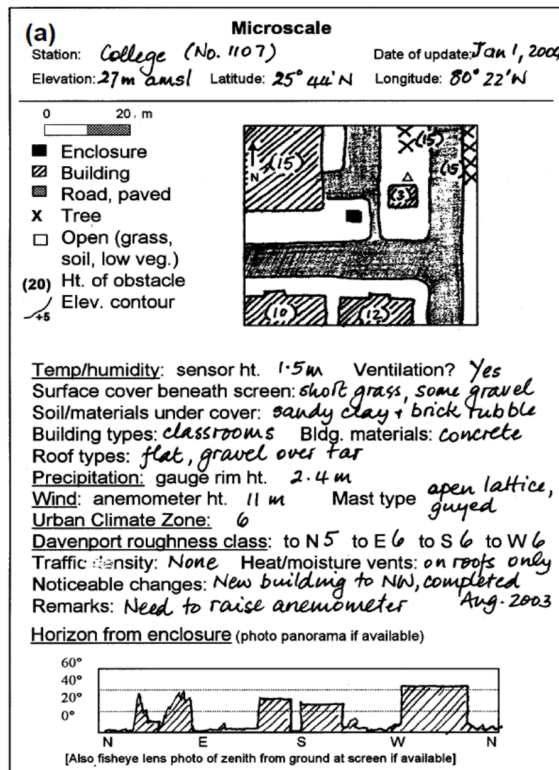 (a) Microscale
Station: College (No. 1107) Date of update: Jan 1, 2004
Elevation: 27m amsl Latitude: 25° 44'N Longitude: 80° 22'W
0 20. m
Enclosure
Building
Road, paved
X Tree
Open (grass,
soil, low veg.)
(20) Ht. of obstacle
Elev. contour
+5
N
(15)
(15)
(15)
(3)
(10)
(12)
Temp/humidity: sensor ht. 1.5m Ventilation? Yes
Surface cover beneath screen: short grass, some gravel
Soil/materials under cover: sandy clay + brick rubble
Building types: classrooms Bldg. materials: concrete
Roof types: flat, gravel over tar
Precipitation: gauge rim ht. 2.4 m
Wind: anemometer ht. 11 m Mast type open lattice,
guyed
Urban Climate Zone: 6
Davenport roughness class: to N 5 to E 6 to S 6 to W 6
Traffic density: None Heat/moisture vents: on roofs only
Noticeable changes: New building to NW, completed
Remarks: Need to raise anemometer Aug. 2003
Horizon from enclosure (photo panorama if available)
60°
40°
20°
0°
N E S W N
[Also fisheye lens photo of zenith from ground at screen if available]